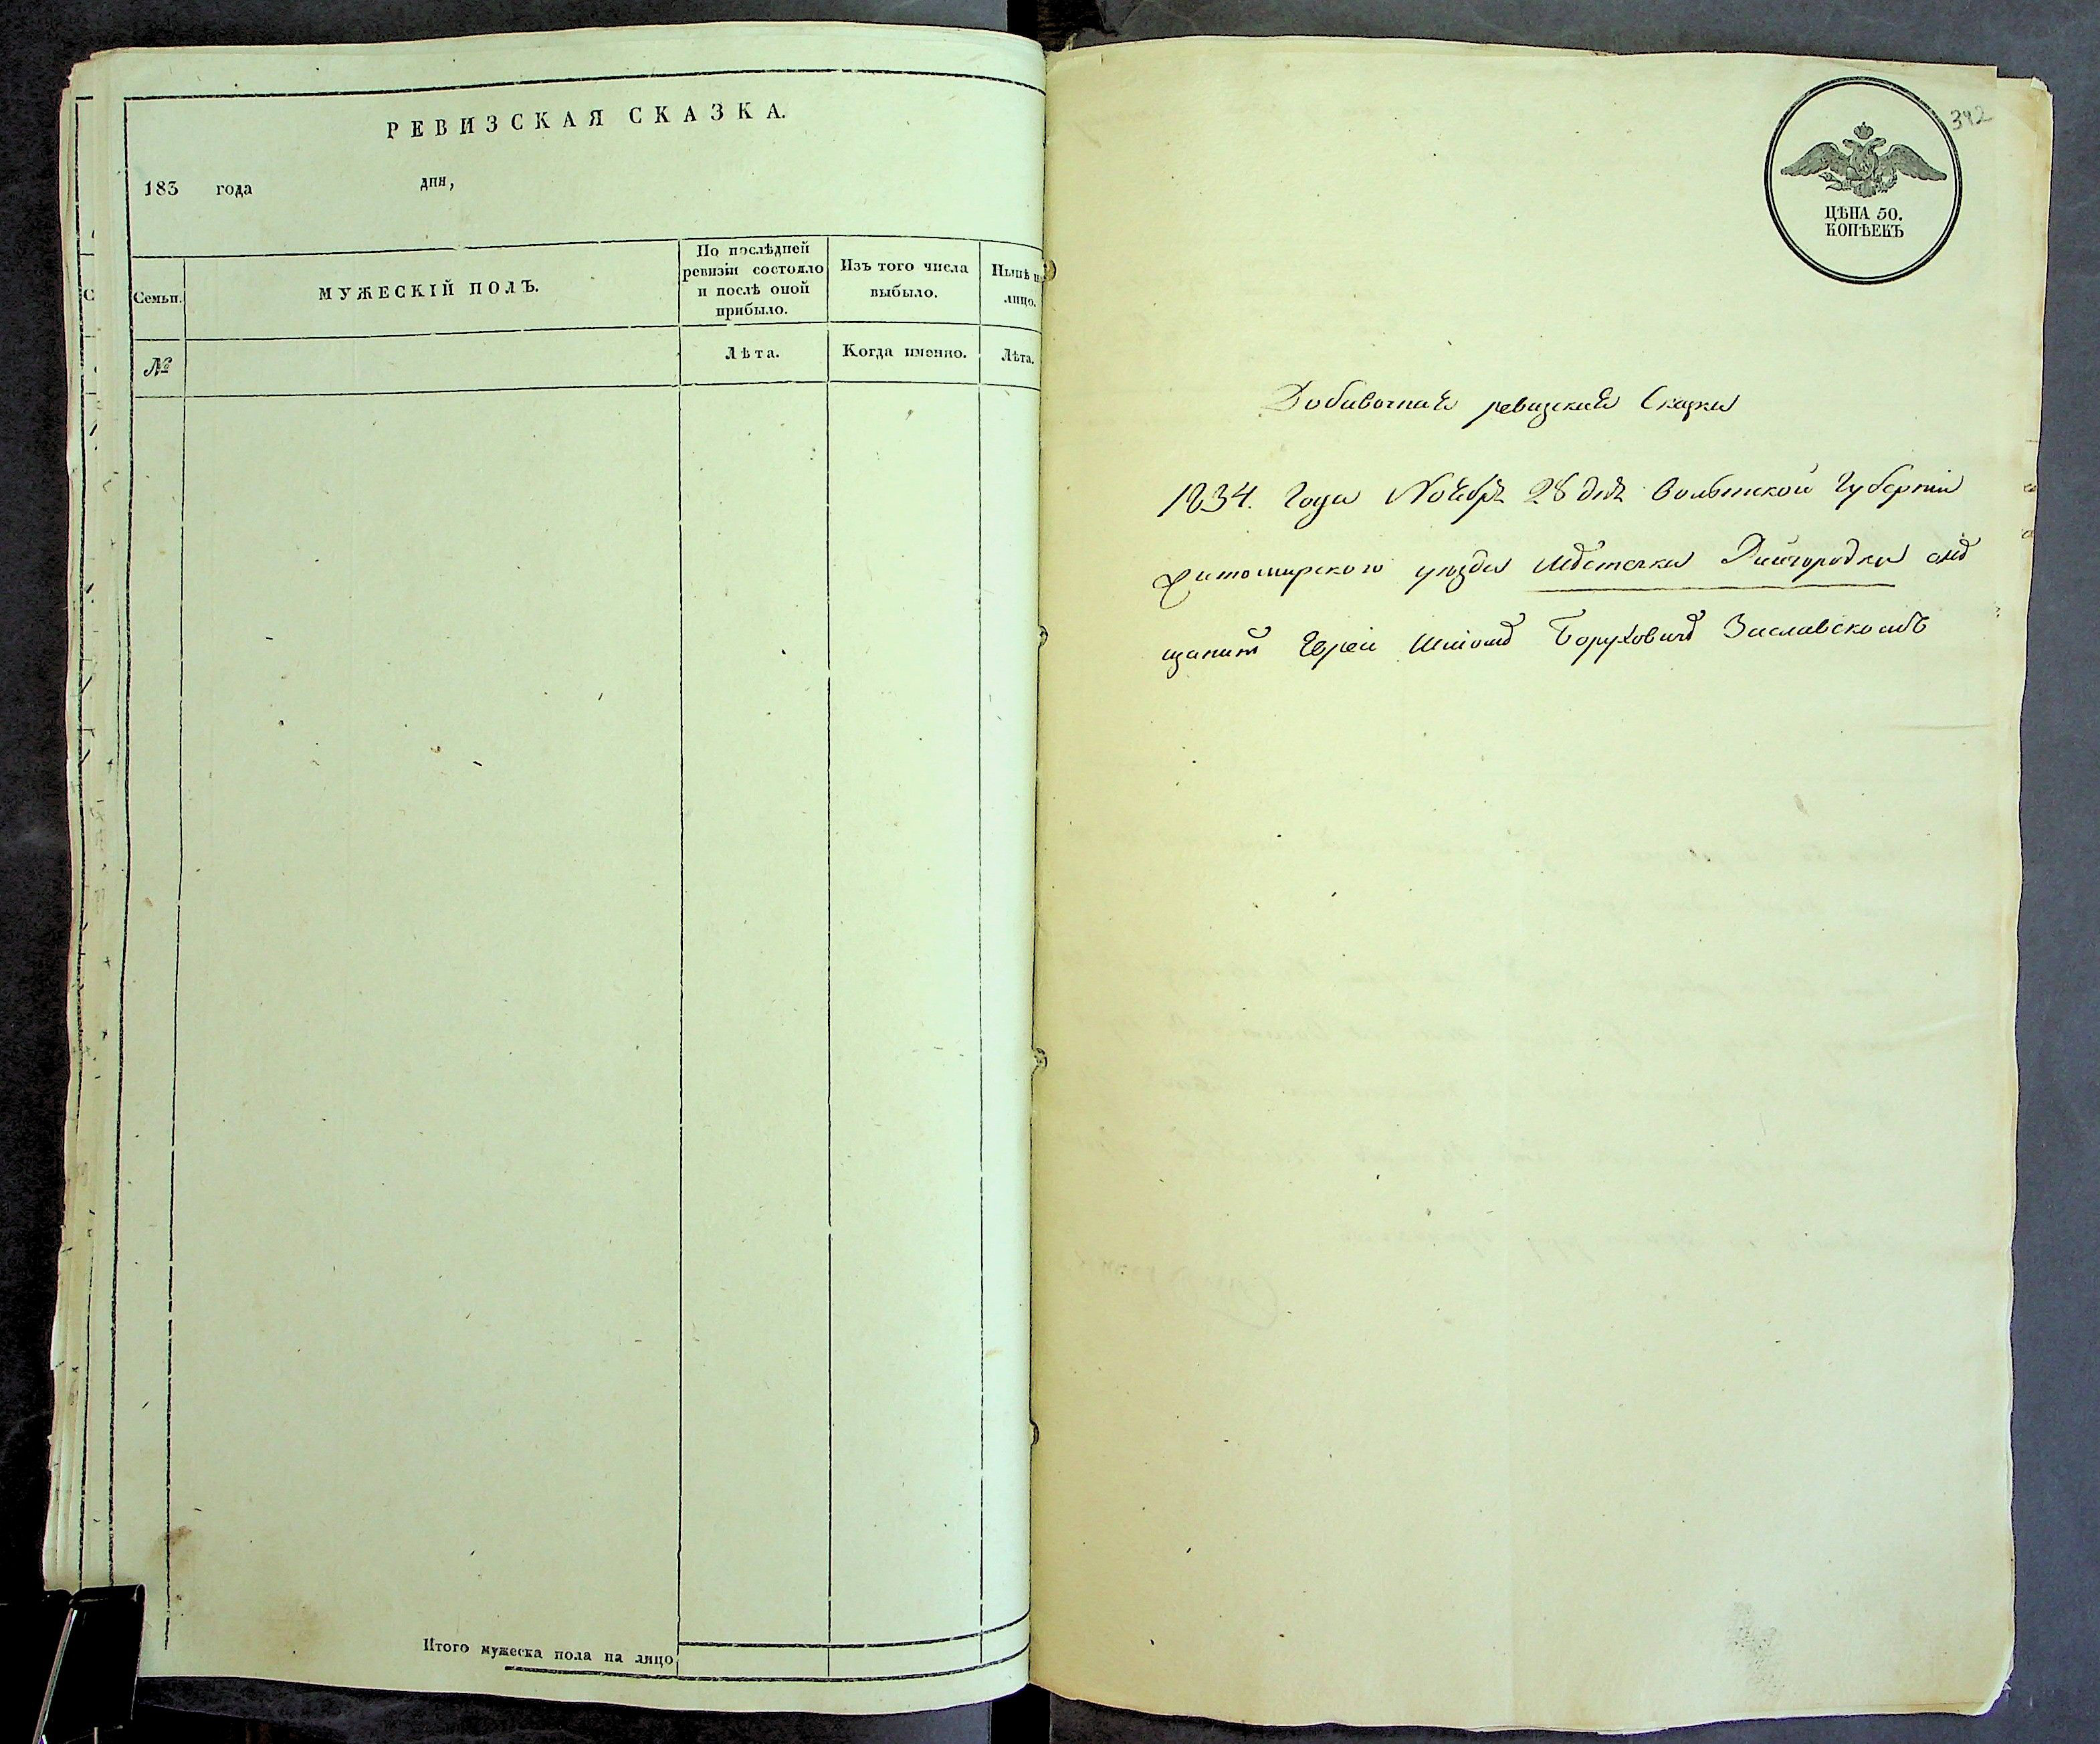 РЕВИЗСКАЯ СКАЗКА.
183 года дня,
Семьи.
МУЖЕСКІЙ ПОЛЪ.
По послѣдней
ревизіи состояло
и послѣ оной
прибыло.
Изъ того числа
выбыло.
Нынѣ н
лицо.
№
Лѣта.
Когда именно.
Лѣта.
Итого мужеска пола на лицо
342
ЦѢНА 50.
КОПѢЕКЪ
Добавочная ревизская Сказка
1834. Года Ноября 28 дня Волынской Губерніи
Житомирского уезда Мѣстечка
Еврей Боруховичъ Заславскомъ